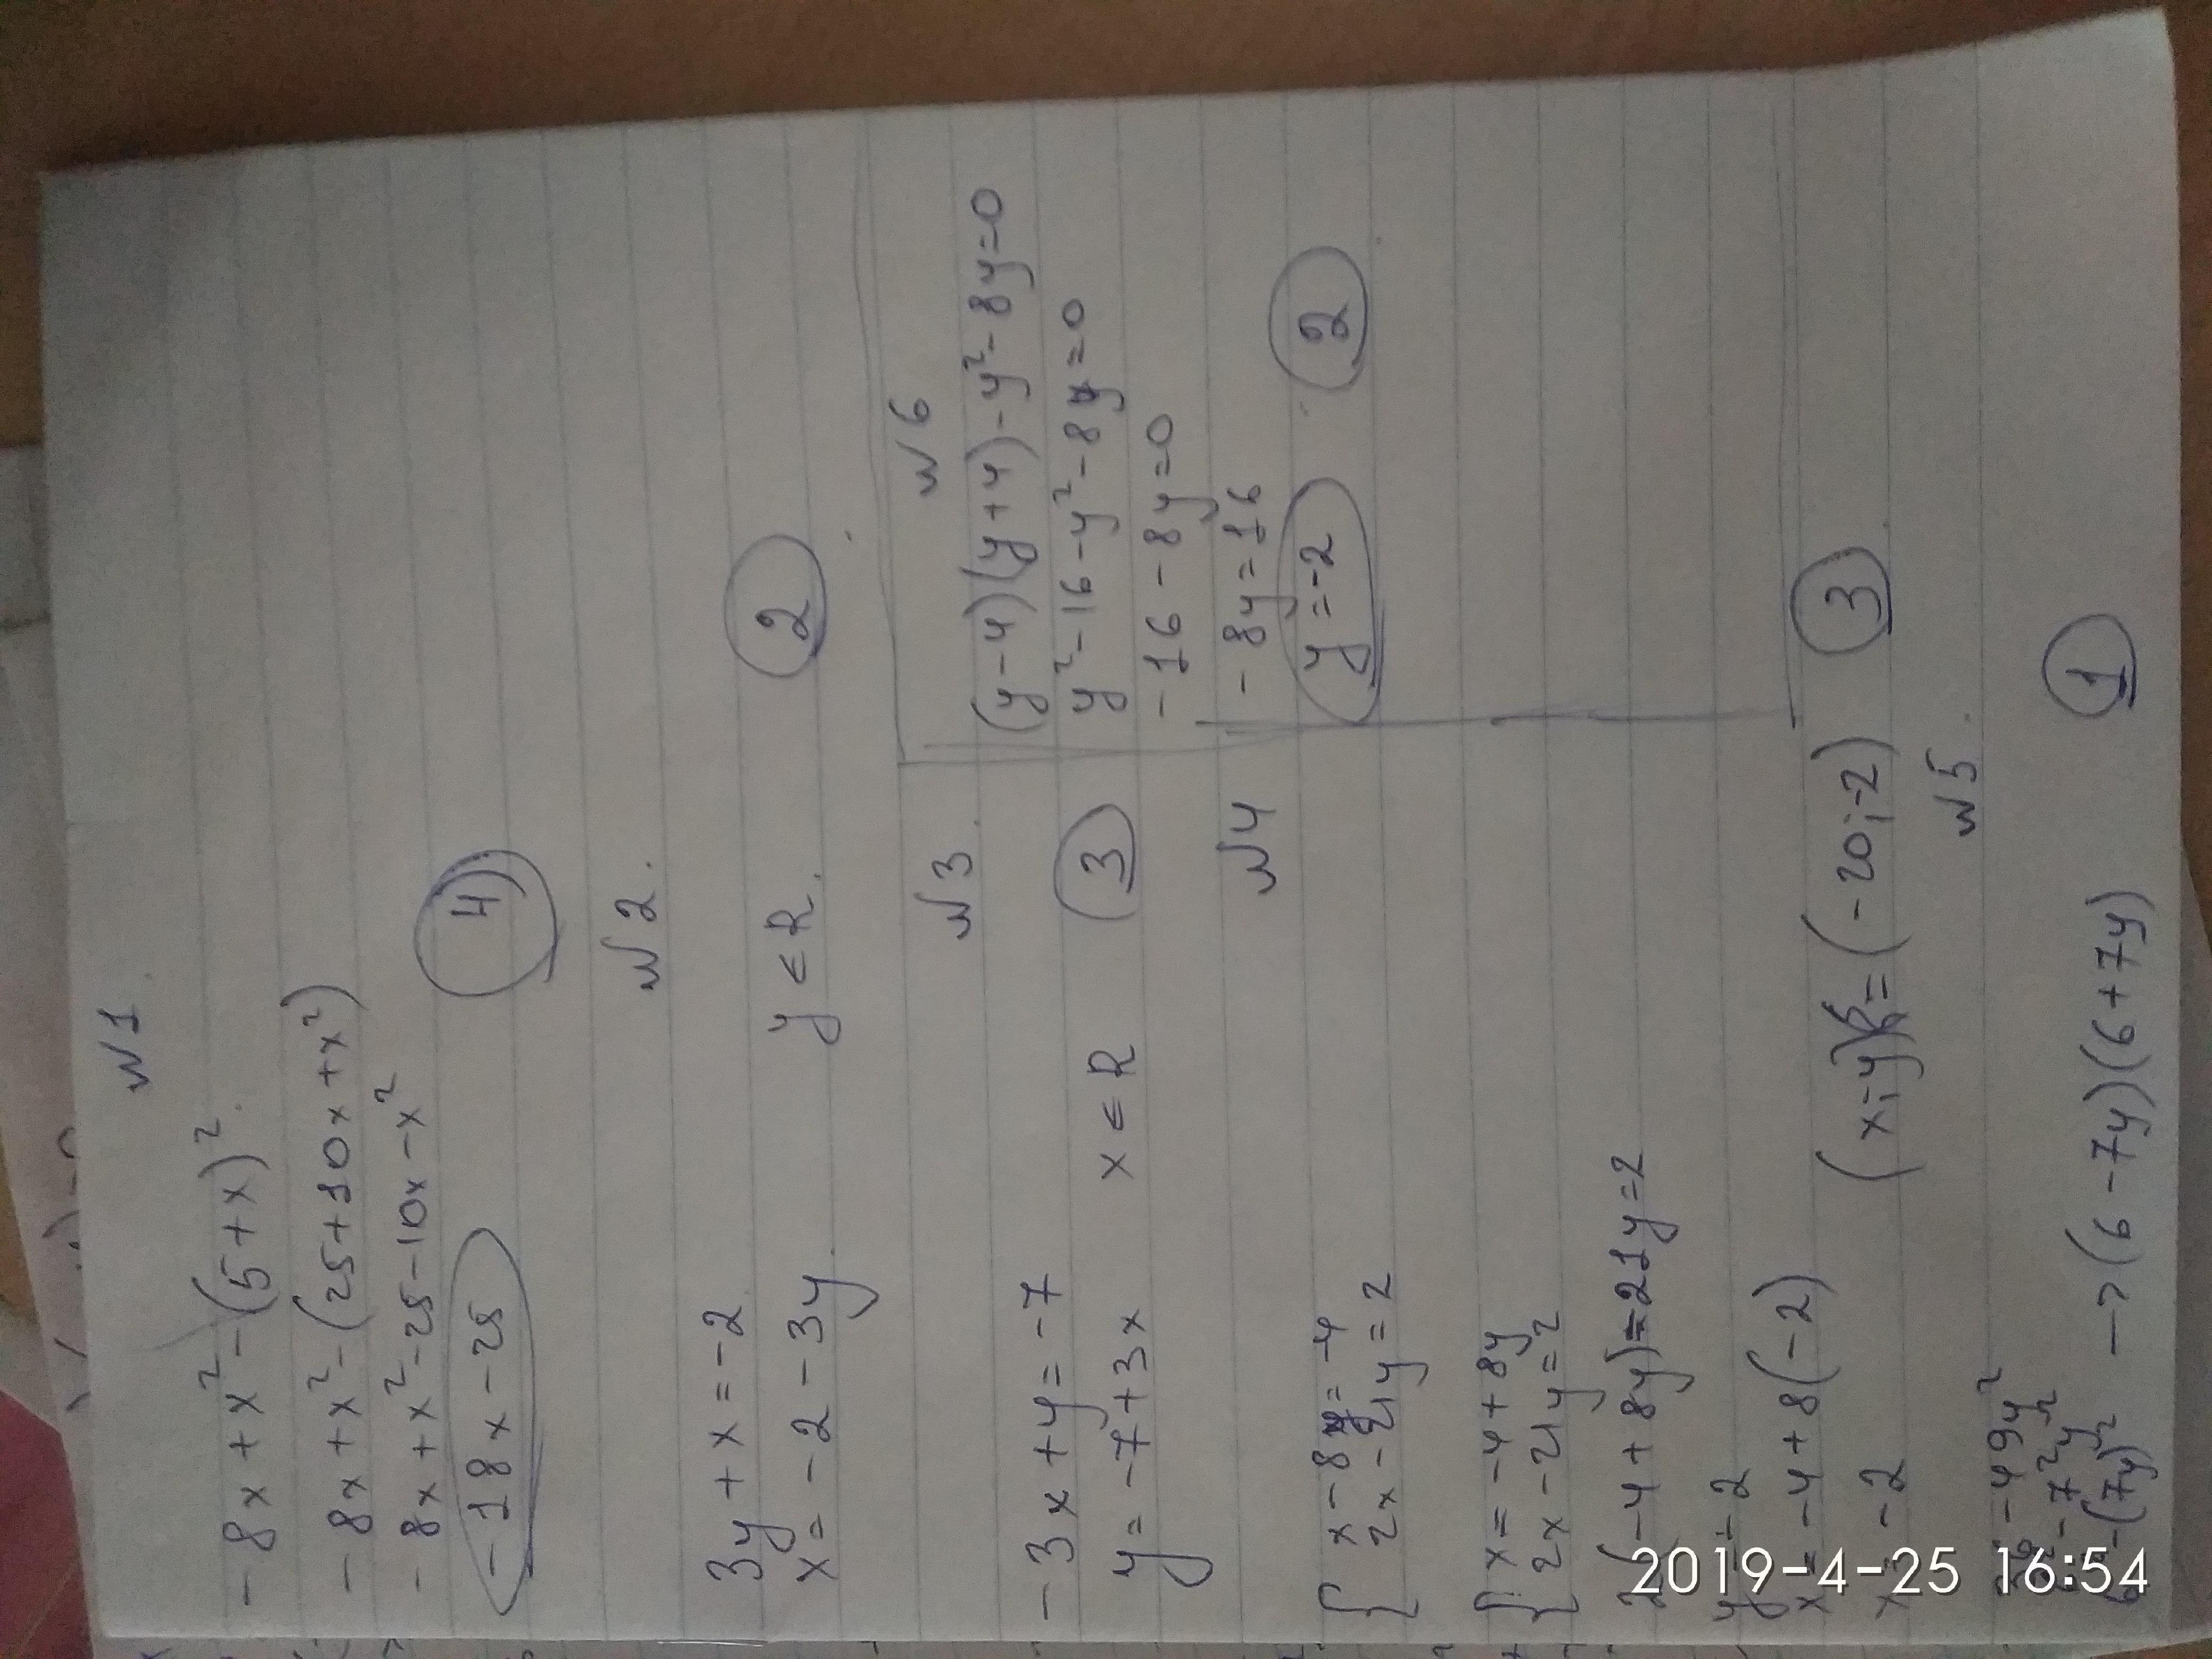 №1
-8x+x²-(5+x)²
-8x+x²-(25+10x+x²)
-8x+x²-25-10x-x²
-18x-25
4)
№2.
3y+x=-2
x=-2-3y
y∈R.
2
№3
-3x+y=-7
y=-7+3x
x∈R
3
№4
x-8y=-4
2x-21y=2
x=-4+8y
2x-21y=2
2(-4+8y)-21y=2
y=-2
x=-4+8(-2)
x=-2
(x;y)=(-20;-2)
3
№5
36-49y²
6²-7²y²
6²-(7y)² →(6-7y)(6+7y)
1
№6
(y-4)(y+4)-y²-8y=0
y²-16-y²-8y=0
-16-8y=0
-8y=16
y=-2
2
2019-4-25 16:54